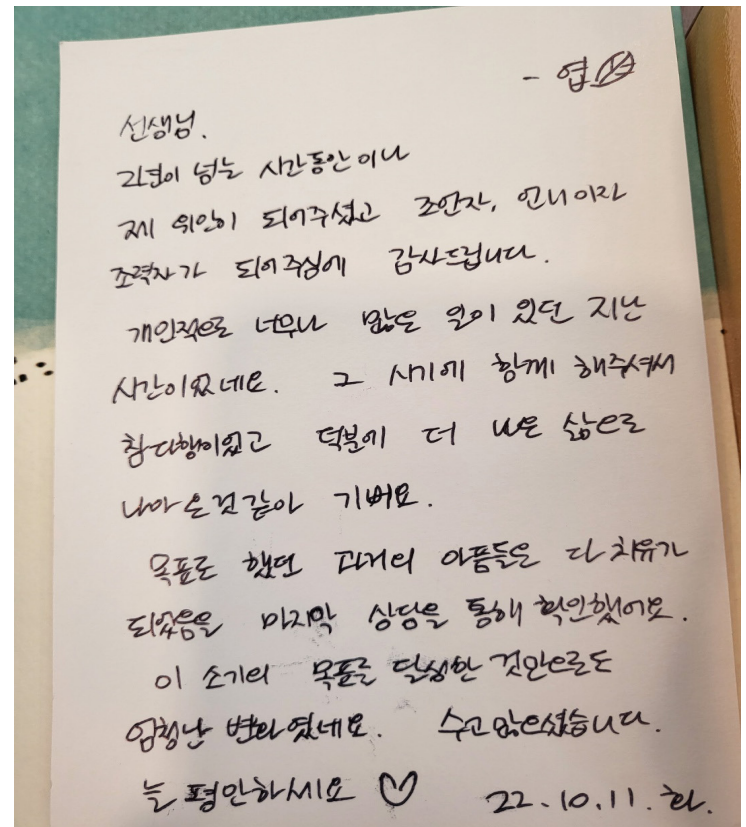 - 엽
선생님.
2년이 넘는 시간동안이나
제 위안이 되어주셨고 조언자, 언니이자
조력자가 되어주심에 감사드립니다.
개인적으로 너무나 많은 일이 있던 지난
시간이었네요. 그 시기에 함께 해주셔서
참 다행이었고 덕분에 더 나은 삶으로
나아온것같아 기뻐요.
목표로 했던 과거의 아픔들은 다 치유가
되었음을 마지막 상담을 통해 확인했어요.
이 소기의 목표를 달성한 것만으로도
엄청난 변화였네요. 수고많으셨습니다.
늘 평안하세요 ♡ 22.10.11. 화.